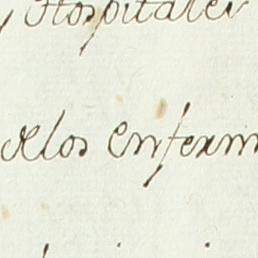 y Hospitales
delos Enferm